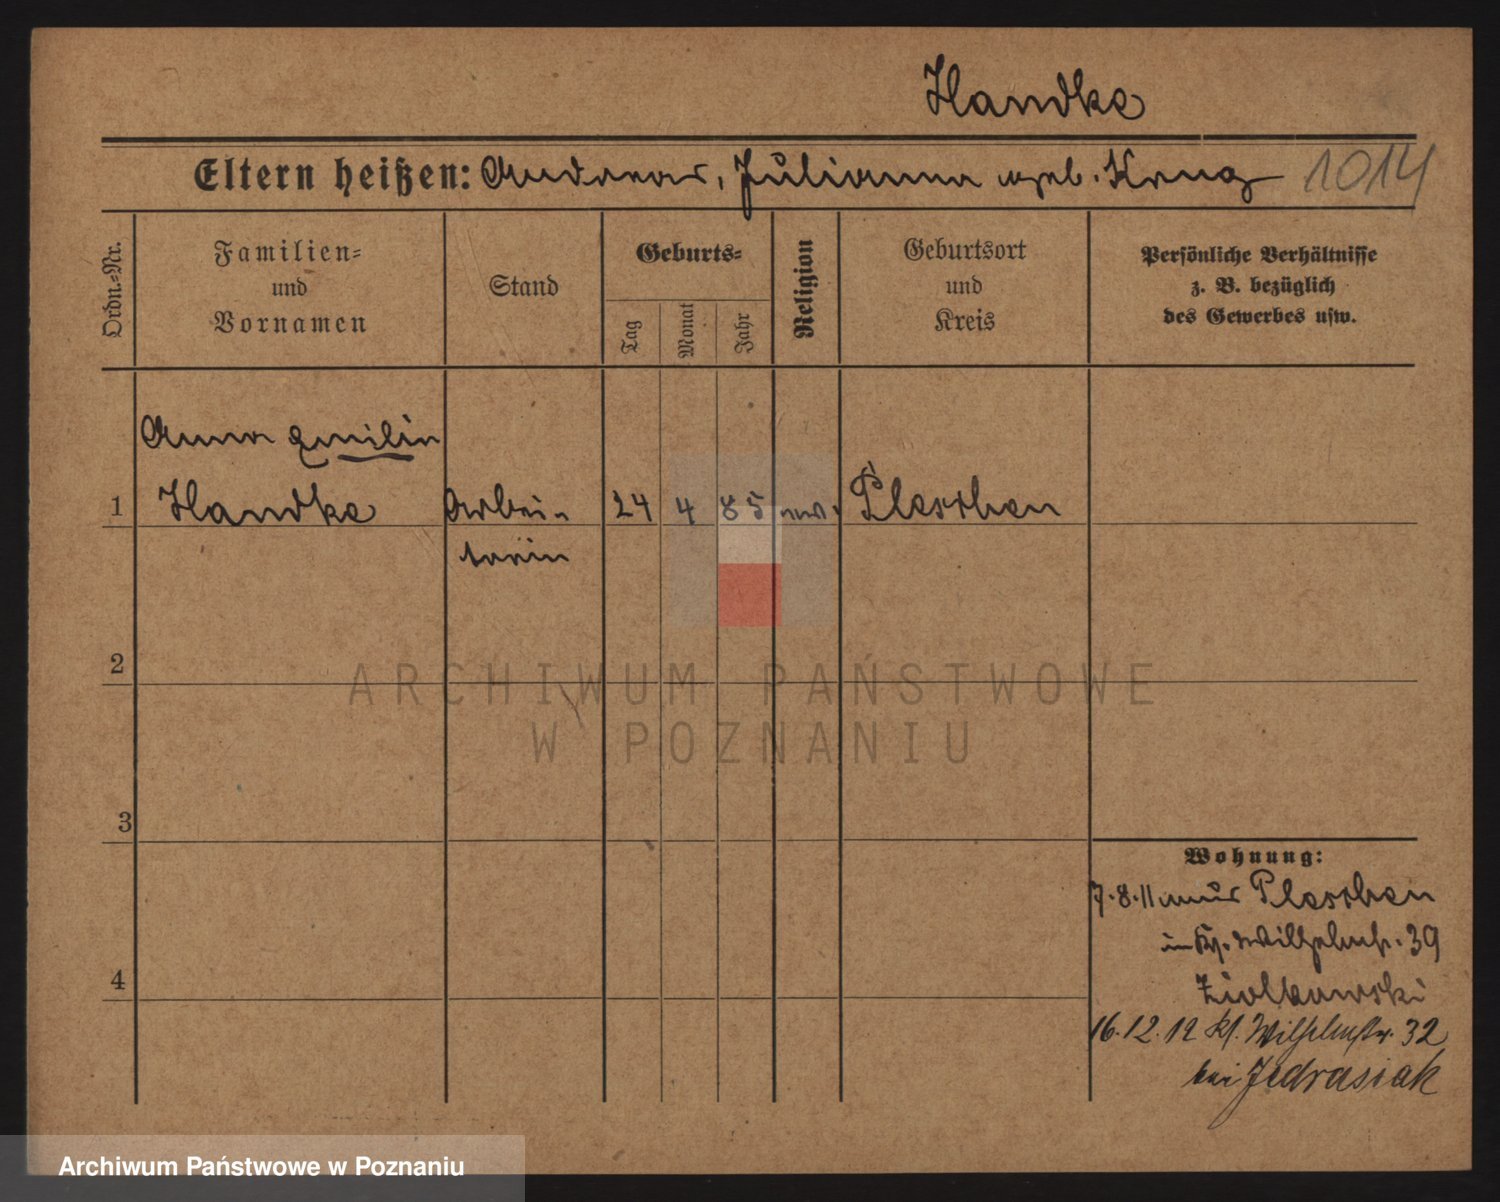 Handke
Eltern heißen: Andreas, Julianna geb. Krug 1014
Ordn.-Nr.
Familien-
und
Vornamen
Stand
Geburts-
Tag
Monat
Jahr
Religion
Geburtsort
und
Kreis
Persönliche Verhältnisse
z. B. bezüglich
des Gewerbes usw.
Anna Emilie
1 Handke Arbei- 24 4 85 Pleschen
terin
2
3
4
Wohnung:
7.8.11 aus Pleschen
Wilhelmstr. 39
Ziolkowski
16.12.12 Kl. Wilhelmstr. 32
bei Jedrasiak
ARCHIWUM PAŃSTWOWE
W POZNANIU
Archiwum Państwowe w Poznaniu